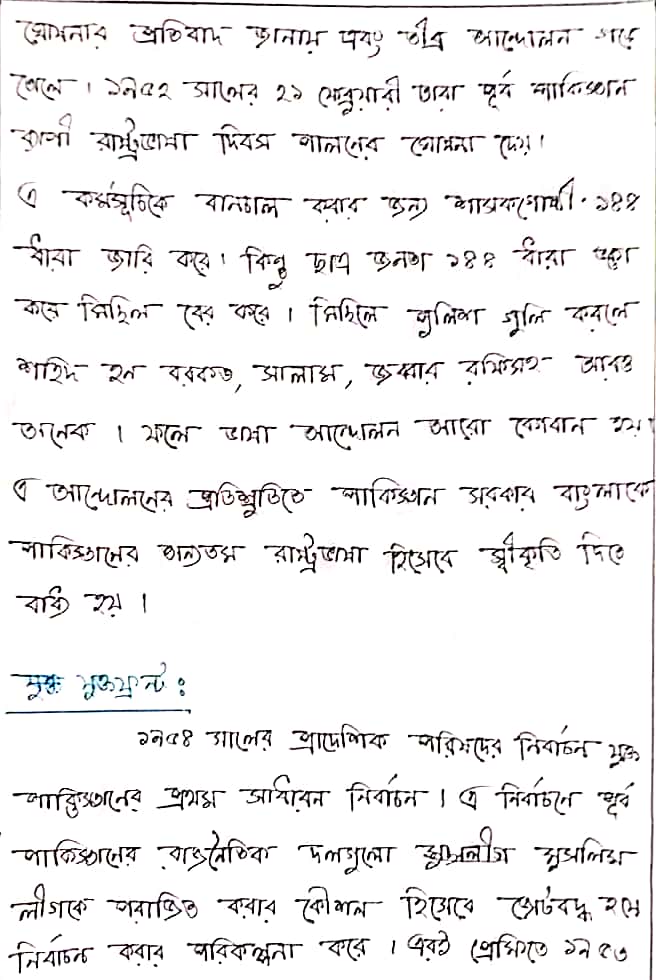 ঘোষনার প্রতিবাদ জানায় এবং তীব্র আন্দোলন গড়ে
তোলে । ১৯৫২ সালের ২১ ফেব্রুয়ারী তারা পূর্ব পাকিস্তান
ব্যাপী রাষ্ট্রভাষা দিবস পালনের ঘোষনা দেয়।
এ কর্মসূচিকে বানচাল করার জন্য শাসকগোষ্ঠী ১৪৪
ধারা জারি করে। কিন্তু ছাত্র জনতা ১৪৪ ধারা ভঙ্গ
করে মিছিল বের করে । মিছিলে পুলিশ গুলি করলে
শহিদ হন বরকত, সালাম, জব্বার রফিকসহ আরও
অনেক । ফলে ভাষা আন্দোলন আরো বেগবান হয়।
এ আন্দোলনের প্রতিশ্রুতিতে পাকিস্তান সরকার বাংলাকে
পাকিস্তানের অন্যতম রাষ্ট্রভাষা হিসেবে স্বীকৃতি দিতে
বাধ্য হয় ।
যুক্ত যুক্তফ্রন্ট :
১৯৫৪ সালের প্রাদেশিক পরিষদের নির্বাচন যুক্ত
পাকিস্তানের প্রথম সাধারন নির্বাচন । এ নির্বাচনে পূর্ব
পাকিস্তানের রাজনৈতিক দলগুলো মুসলিম
লীগকে পরাজিত করার কৌশল হিসেবে জোটবদ্ধ হয়ে
নির্বাচন করার পরিকল্পনা করে । এরই প্রেক্ষিতে ১৯৫৩